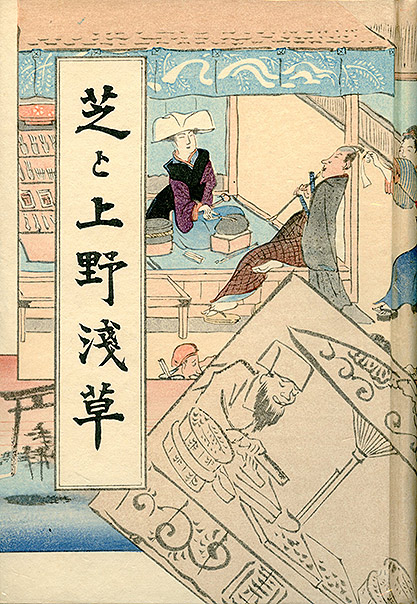 芝と上野淺草